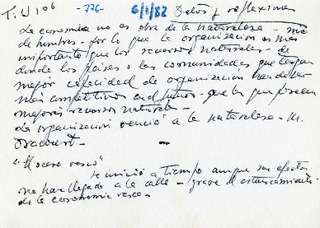 T. U 106 -776- 6/1/82 Datos y reflexiones
La economía no es obra de la naturaleza - sino
de hombres - por lo que la organización es más
importante que los recursos naturales - de
donde los países o las comunidades que tengan
mayor capacidad de organización han de ser
más competitivos en el futuro - que los que posean
mejores recursos naturales -
La organización venció a la naturaleza - in.
"El ocaso vasco"
se inició a tiempo aunque sus efectos
no han llegado a la calle - grave el estancamiento
de la economía vasca -